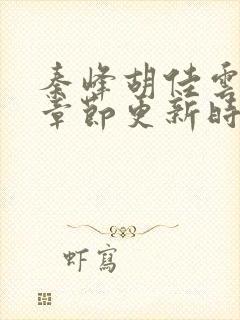 秦峰胡佳雲
章節更新時
虾寫